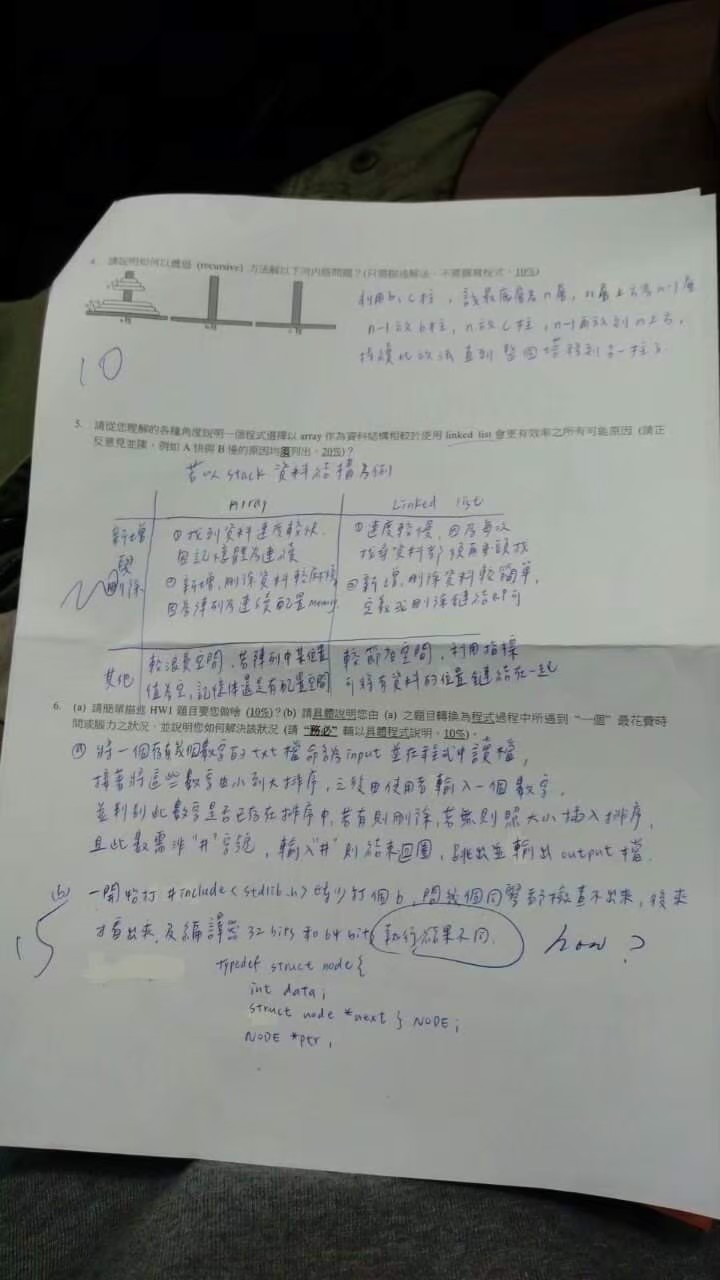 4. 請說明如何以遞迴 (recursive) 方法解以下河內塔問題？(只需描述解法，不需撰寫程式，10%)
利用b、c柱，設最底層為n層，n層上方為n-1層
n-1放b柱，n放c柱，n-1再放到n上方，
持續此放法直到整個塔移到另一柱子
10
5. 請從您理解的各種角度說明一個程式選擇以 array 作為資料結構相較於使用 linked list 會更有效率之所有可能原因 (請正
反意見並陳，例如 A 快與 B 慢的原因均須列出，20%)？
若以 stack 資料結構為例
Array Linked list
新增與刪除
①找到資料速度較快，
因記憶體為連續
②新增、刪除資料較麻煩
因為陣列為連續配置memory
①速度較慢，因為每次
找尋資料都須再重頭找
②新增、刪除資料較簡單，
定義或刪除鏈結即可
其他
較浪費空間，若陣列中某位置
值為空，記憶体還是有配置空間
較節省空間，利用指標
可將有資料的位置鏈結在一起
6. (a) 請簡單描述 HW1 題目要您做啥 (10%)？(b) 請具體說明您由 (a) 之題目轉換為程式過程中所遇到 “一個” 最花費時
間或腦力之狀況，並說明您如何解決該狀況 (請 “務必” 輔以具體程式說明，10%)。
(a) 將一個存有幾個數字的 txt 檔命名為 input 並在程式中讀檔，
接著將這些數字由小到大排序，之後由使用者輸入一個數字，
並判別此數字是否已存在排序中，若有則刪除，若無則照大小插入排序，
且此數需非“#”字號，輸入“#”則結束迴圈，跳出並輸出 output 檔.
(b) 一開始打 #include<stdlib.h> 時少打個 b，問幾個同學都檢查不出來，後來
才看出來，及編譯器 32 bits 和 64 bits 執行結果不同. how?
15
typedef struct node{
int data;
struct node *next } NODE;
NODE *ptr;